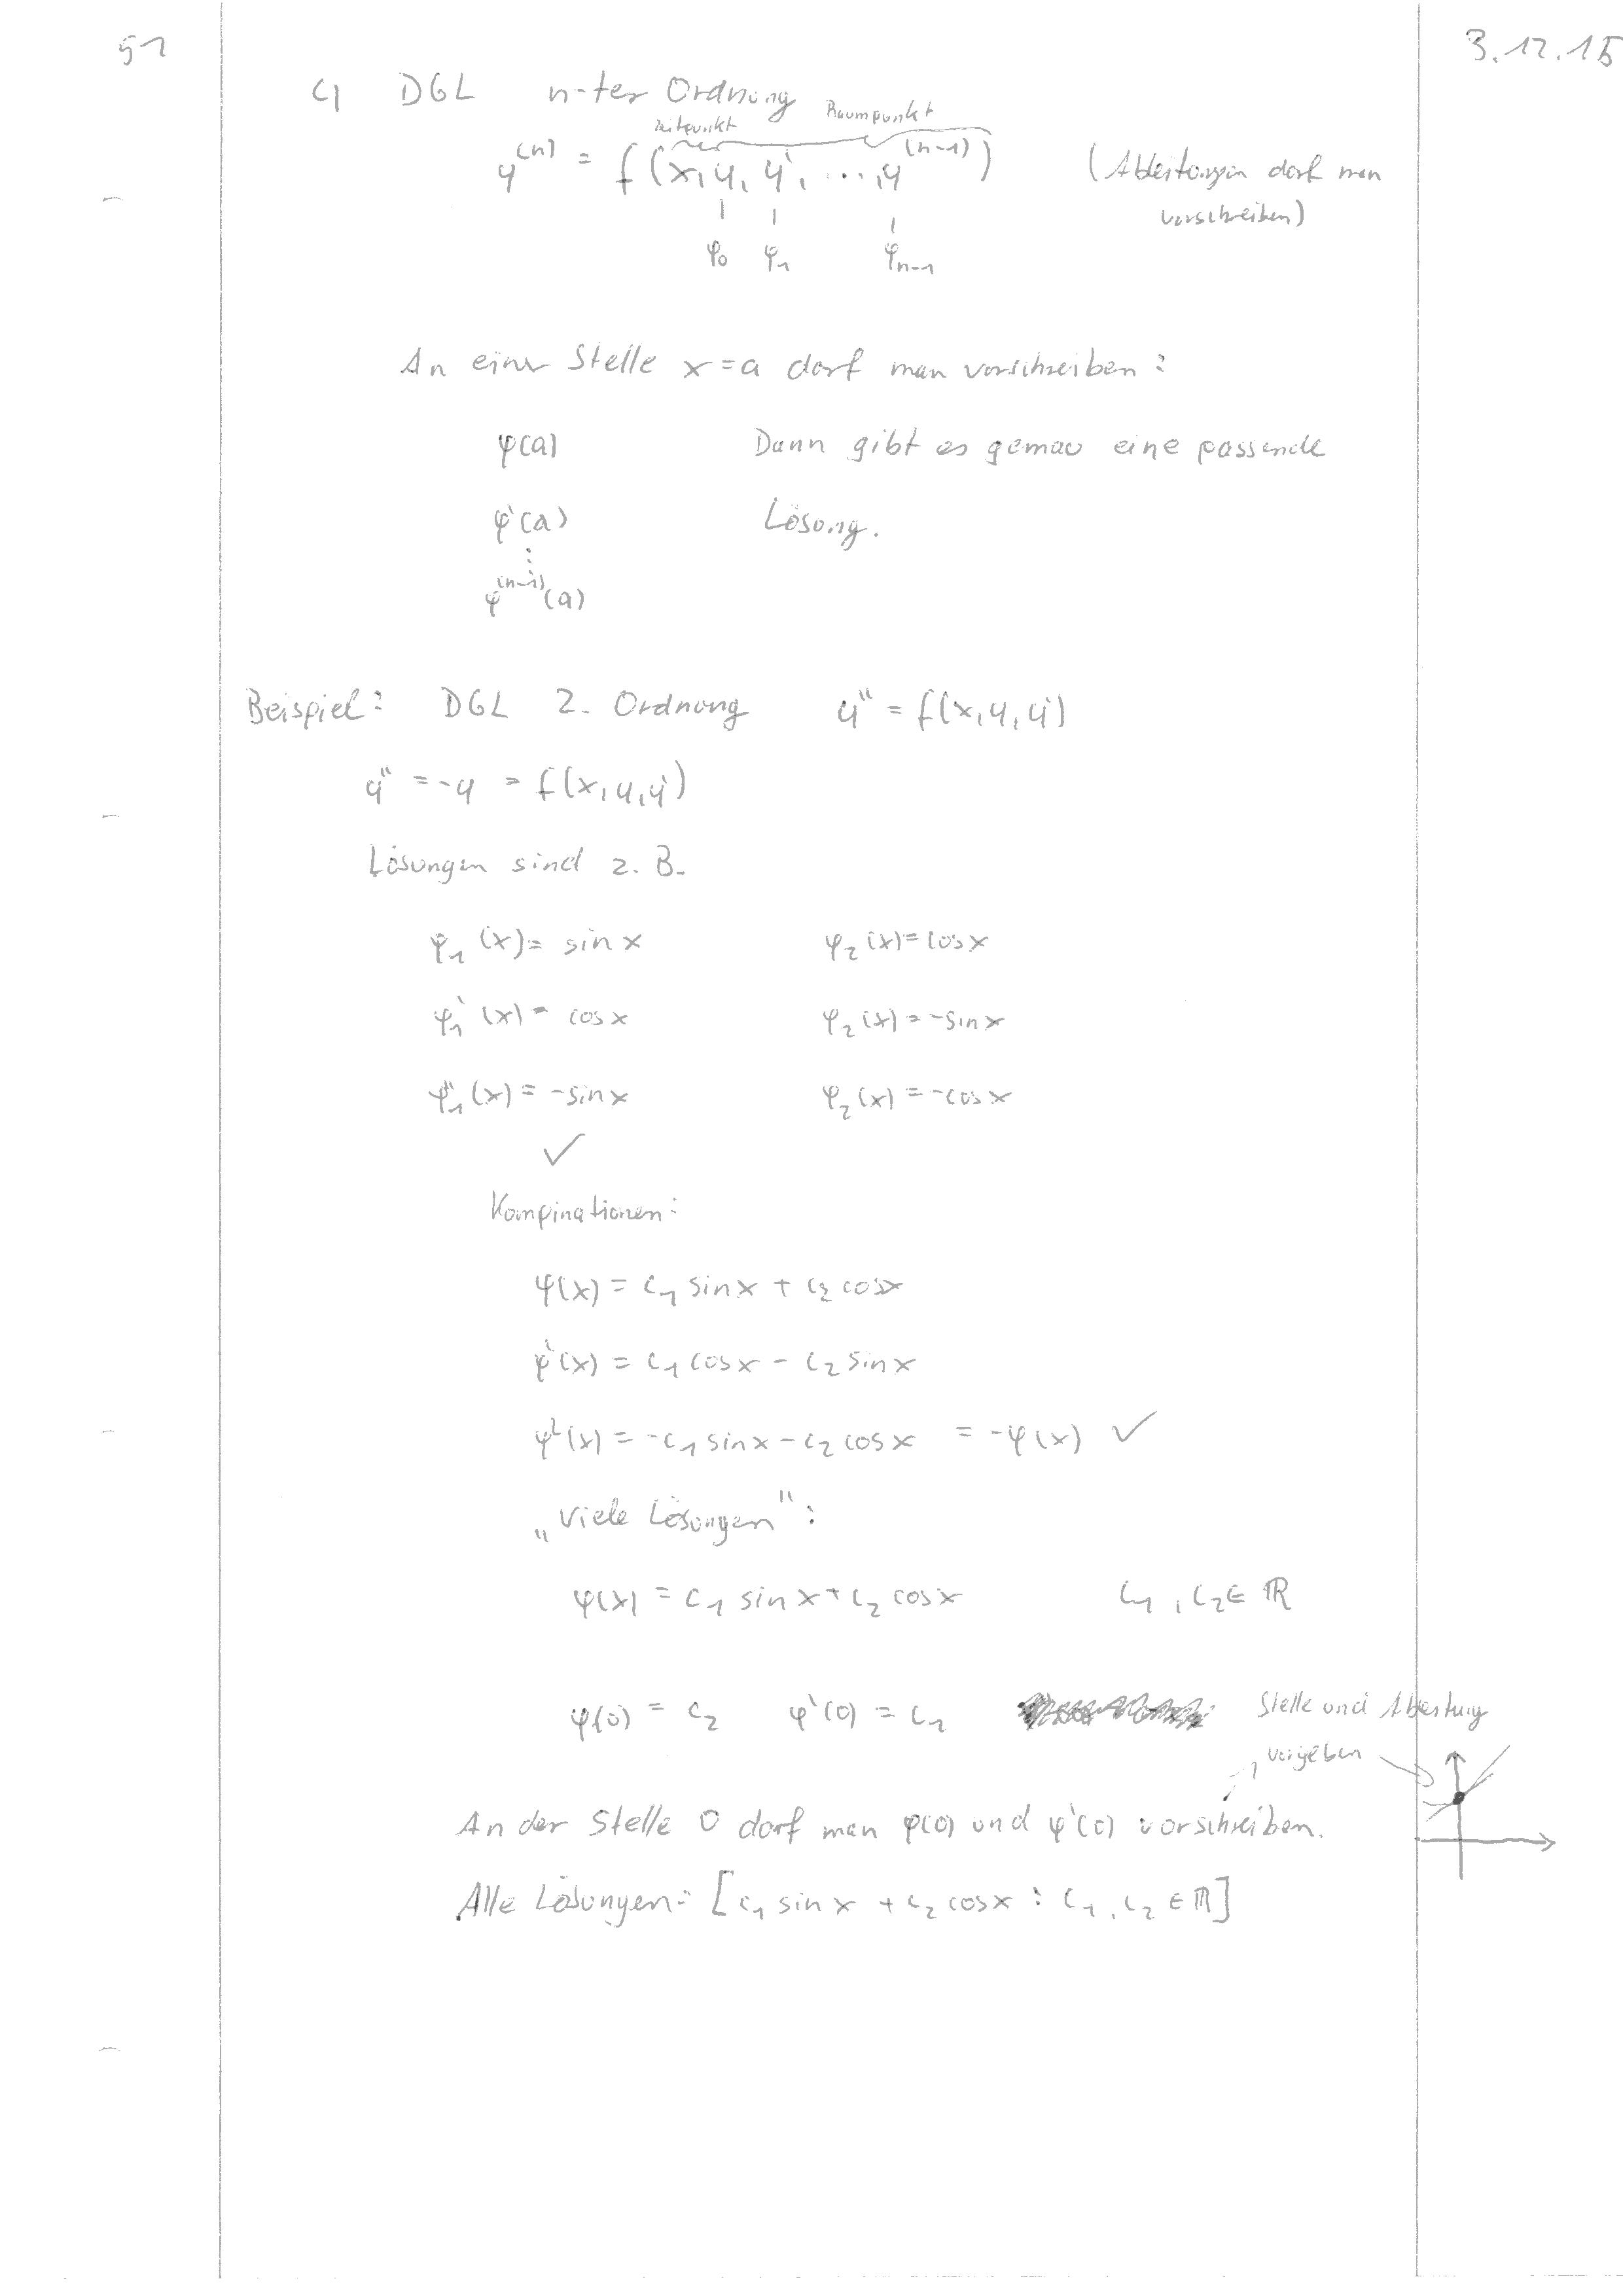 51
3.12.15
c) DGL n-ter Ordnung
Zeitpunkt Raumpunkt
y⁽ⁿ⁾ = f(x, y, y', ..., y⁽ⁿ⁻¹⁾) (Ableitungen darf man
vorschreiben)
φ₀ φ₁ φₙ₋₁
An einer Stelle x=a darf man vorschreiben:
φ(a) Dann gibt es genau eine passende
φ'(a) Lösung.
⋮
φ⁽ⁿ⁻¹⁾(a)
Beispiel: DGL 2. Ordnung y'' = f(x, y, y')
y'' = -y = f(x, y, y')
Lösungen sind z. B.
φ₁(x) = sin x φ₂(x) = cos x
φ₁'(x) = cos x φ₂(x) = -sin x
φ₁''(x) = -sin x φ₂(x) = -cos x
✓
Kompinationen:
φ(x) = c₁ sin x + c₂ cos x
φ'(x) = c₁ cos x - c₂ sin x
φ²(x) = -c₁ sin x - c₂ cos x = -φ(x) ✓
„Viele Lösungen":
φ(x) = c₁ sin x + c₂ cos x c₁, c₂ ∈ ℝ
φ(0) = c₂ φ'(0) = c₁ Stelle und Ableitung
vorgeben
An der Stelle 0 darf man φ(0) und φ'(0) vorschreiben.
Alle Lösungen: [c₁ sin x + c₂ cos x : c₁, c₂ ∈ ℝ]